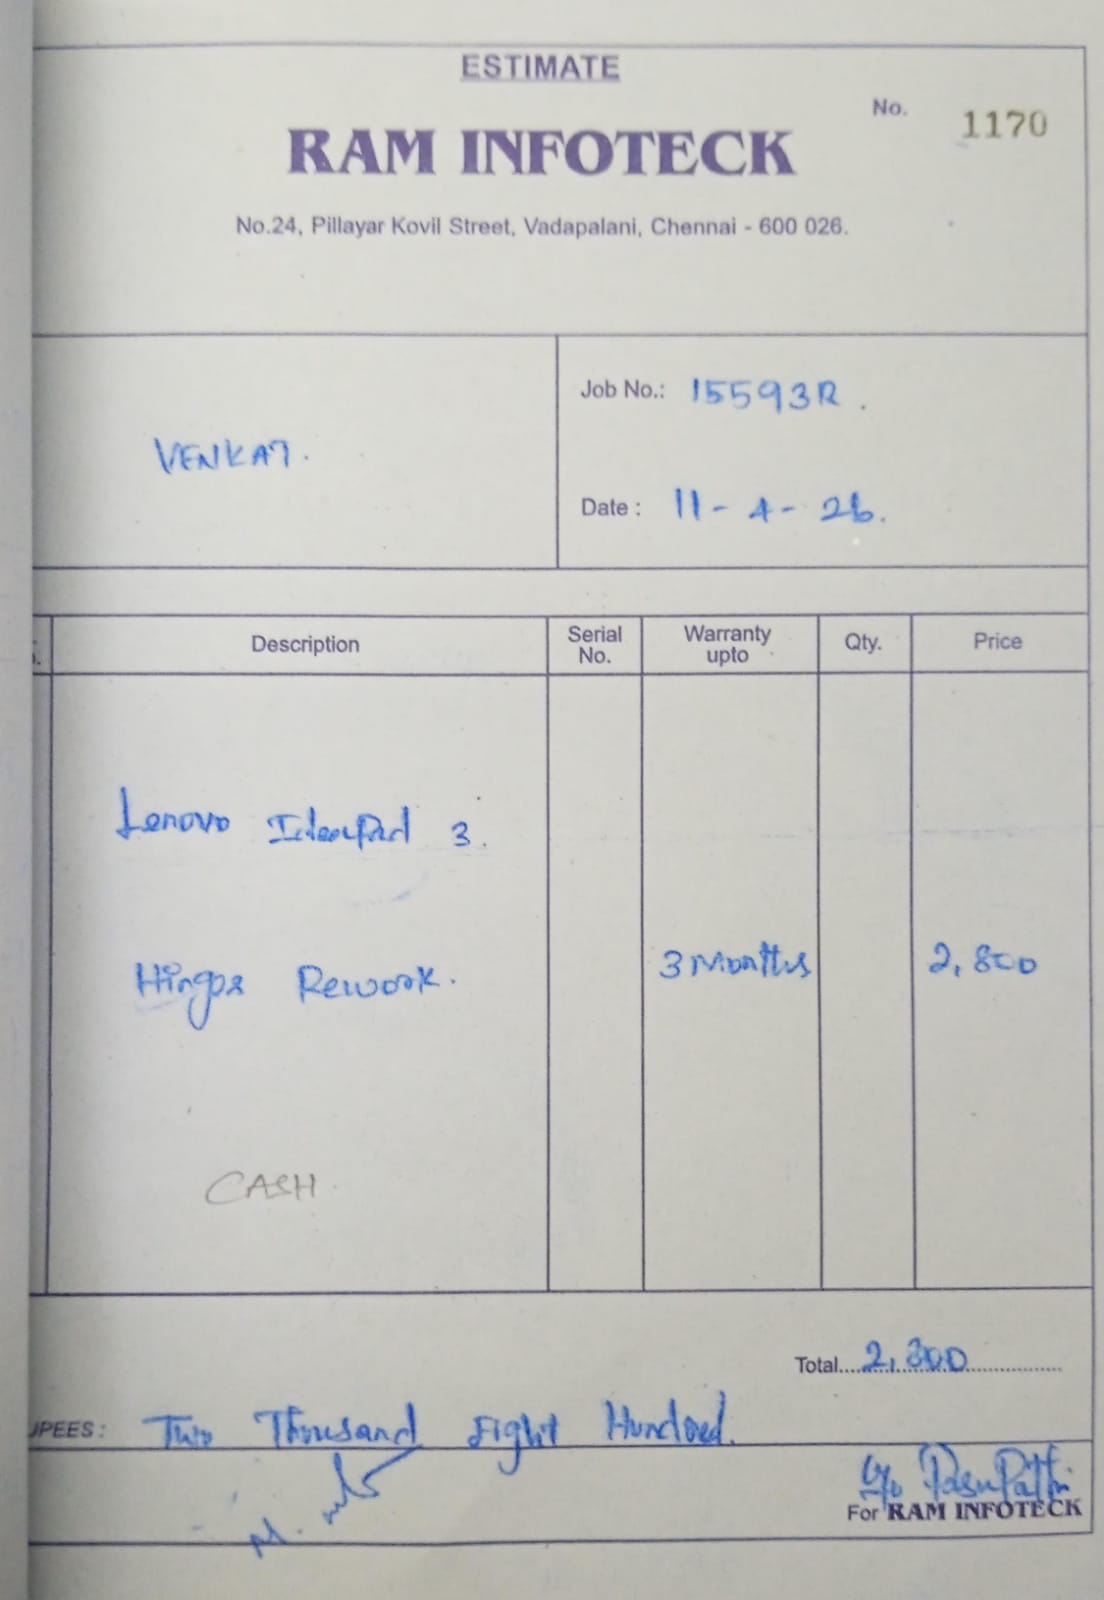 ESTIMATE
No. 1170
RAM INFOTECK
No.24, Pillayar Kovil Street, Vadapalani, Chennai - 600 026.
VENKAT.
Job No.: 15593R.
Date : 11-4-26.
Description Serial No. Warranty upto Qty. Price
Lenovo IdeaPad 3.
Hinges Rework. 3 Months 2,800
CASH
Total.... 2,800
UPEES : Two Thousand Eight Hundred.
PasuPathi
For RAM INFOTECK